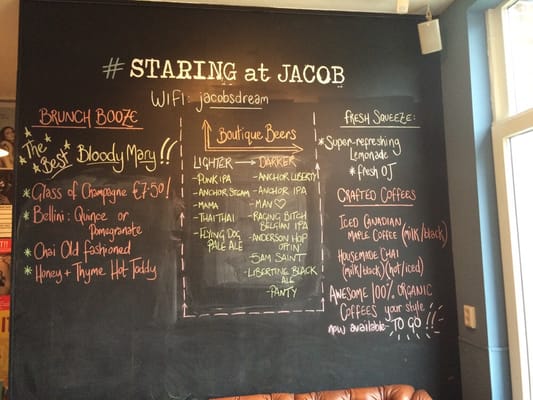 # STARING at JACOB
WIFI: jacobsdream
BRUNCH BOOZE
The Best Bloody Mary!!
* Glass of Champagne €7.50!
* Bellini: Quince or
Pomegranate
* Chai Old fashioned
* Honey + Thyme Hot Toddy
Boutique Beers
LIGHTER → DARKER
- PUNK IPA
- ANCHOR STEAM
- MAMA
- THAI THAI
- FLYING DOG
PALE ALE
- ANCHOR LIBERTY
- ANCHOR IPA
- MAN ♡
- RAGING BITCH
BELGIAN IPA
- ANDERSON HOP
OTTIN'
- SAM SAINT
- LIBERTING BLACK
ALE
- PANTY
FRESH SQUEEZE:
* Super-refreshing
Lemonade
* fresh OJ
CRAFTED COFFEES
ICED CANADIAN
MAPLE COFFEE (milk/black)
HOUSEMADE CHAI
(milk/black)(hot/iced)
AWESOME 100% ORGANIC
COFFEES your style
now available - TO GO!!